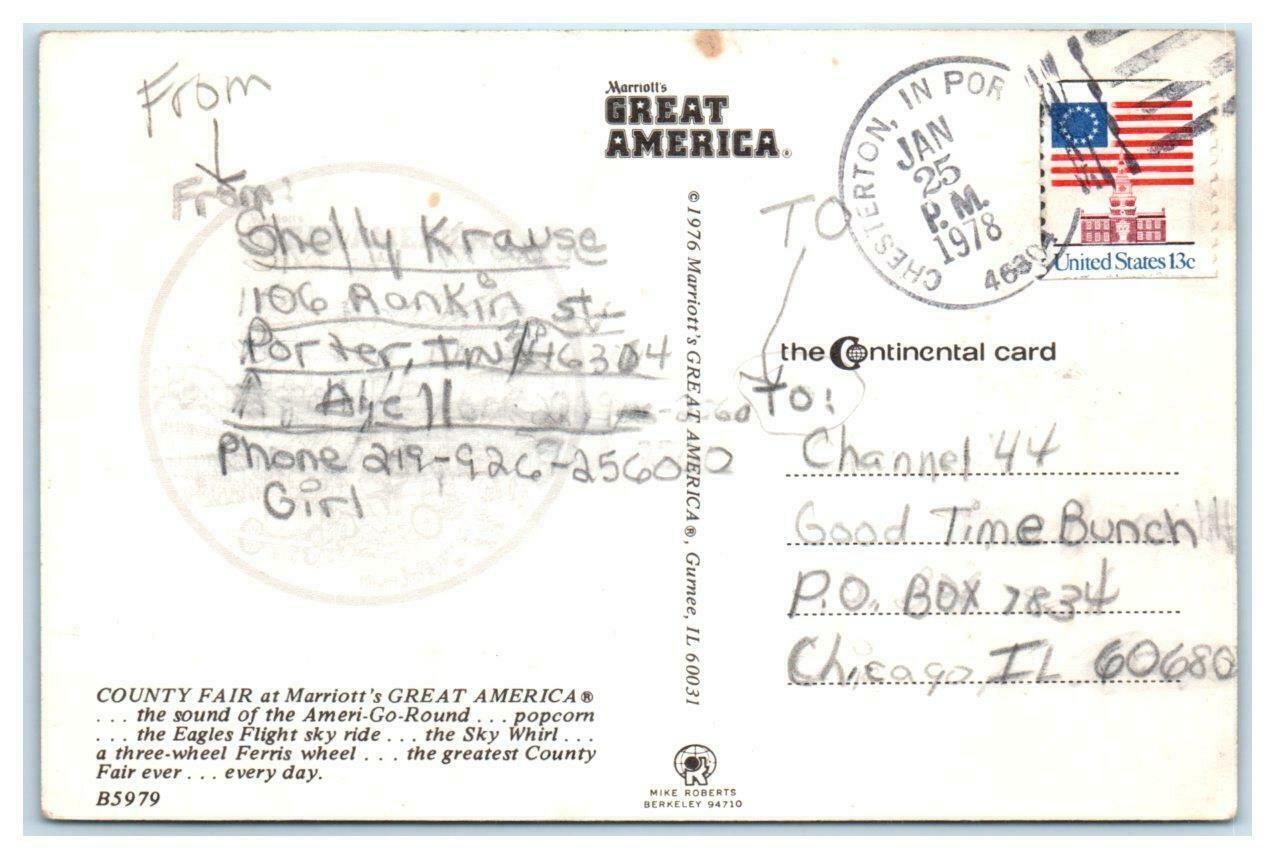 From
From:
Shelly Krause
1106 Rankin St.
Porter, IN / ZIP 46304
Age 11
Phone 219-926-2560
Girl
COUNTY FAIR at Marriott's GREAT AMERICA®
. . . the sound of the Ameri-Go-Round . . . popcorn
. . . the Eagles Flight sky ride . . . the Sky Whirl . . .
a three-wheel Ferris wheel . . . the greatest County
Fair ever . . . every day.
B5979
Marriott's
GREAT
AMERICA®
© 1976 Marriott's GREAT AMERICA®, Gurnee, IL 60031
MIKE ROBERTS
BERKELEY 94710
CHESTERTON, IN POR
JAN
25
P.M.
1978
46304
United States 13c
TO
the Continental card
TO:
Channel 44
Good Time Bunch
P.O. BOX 7834
Chicago, IL 60680